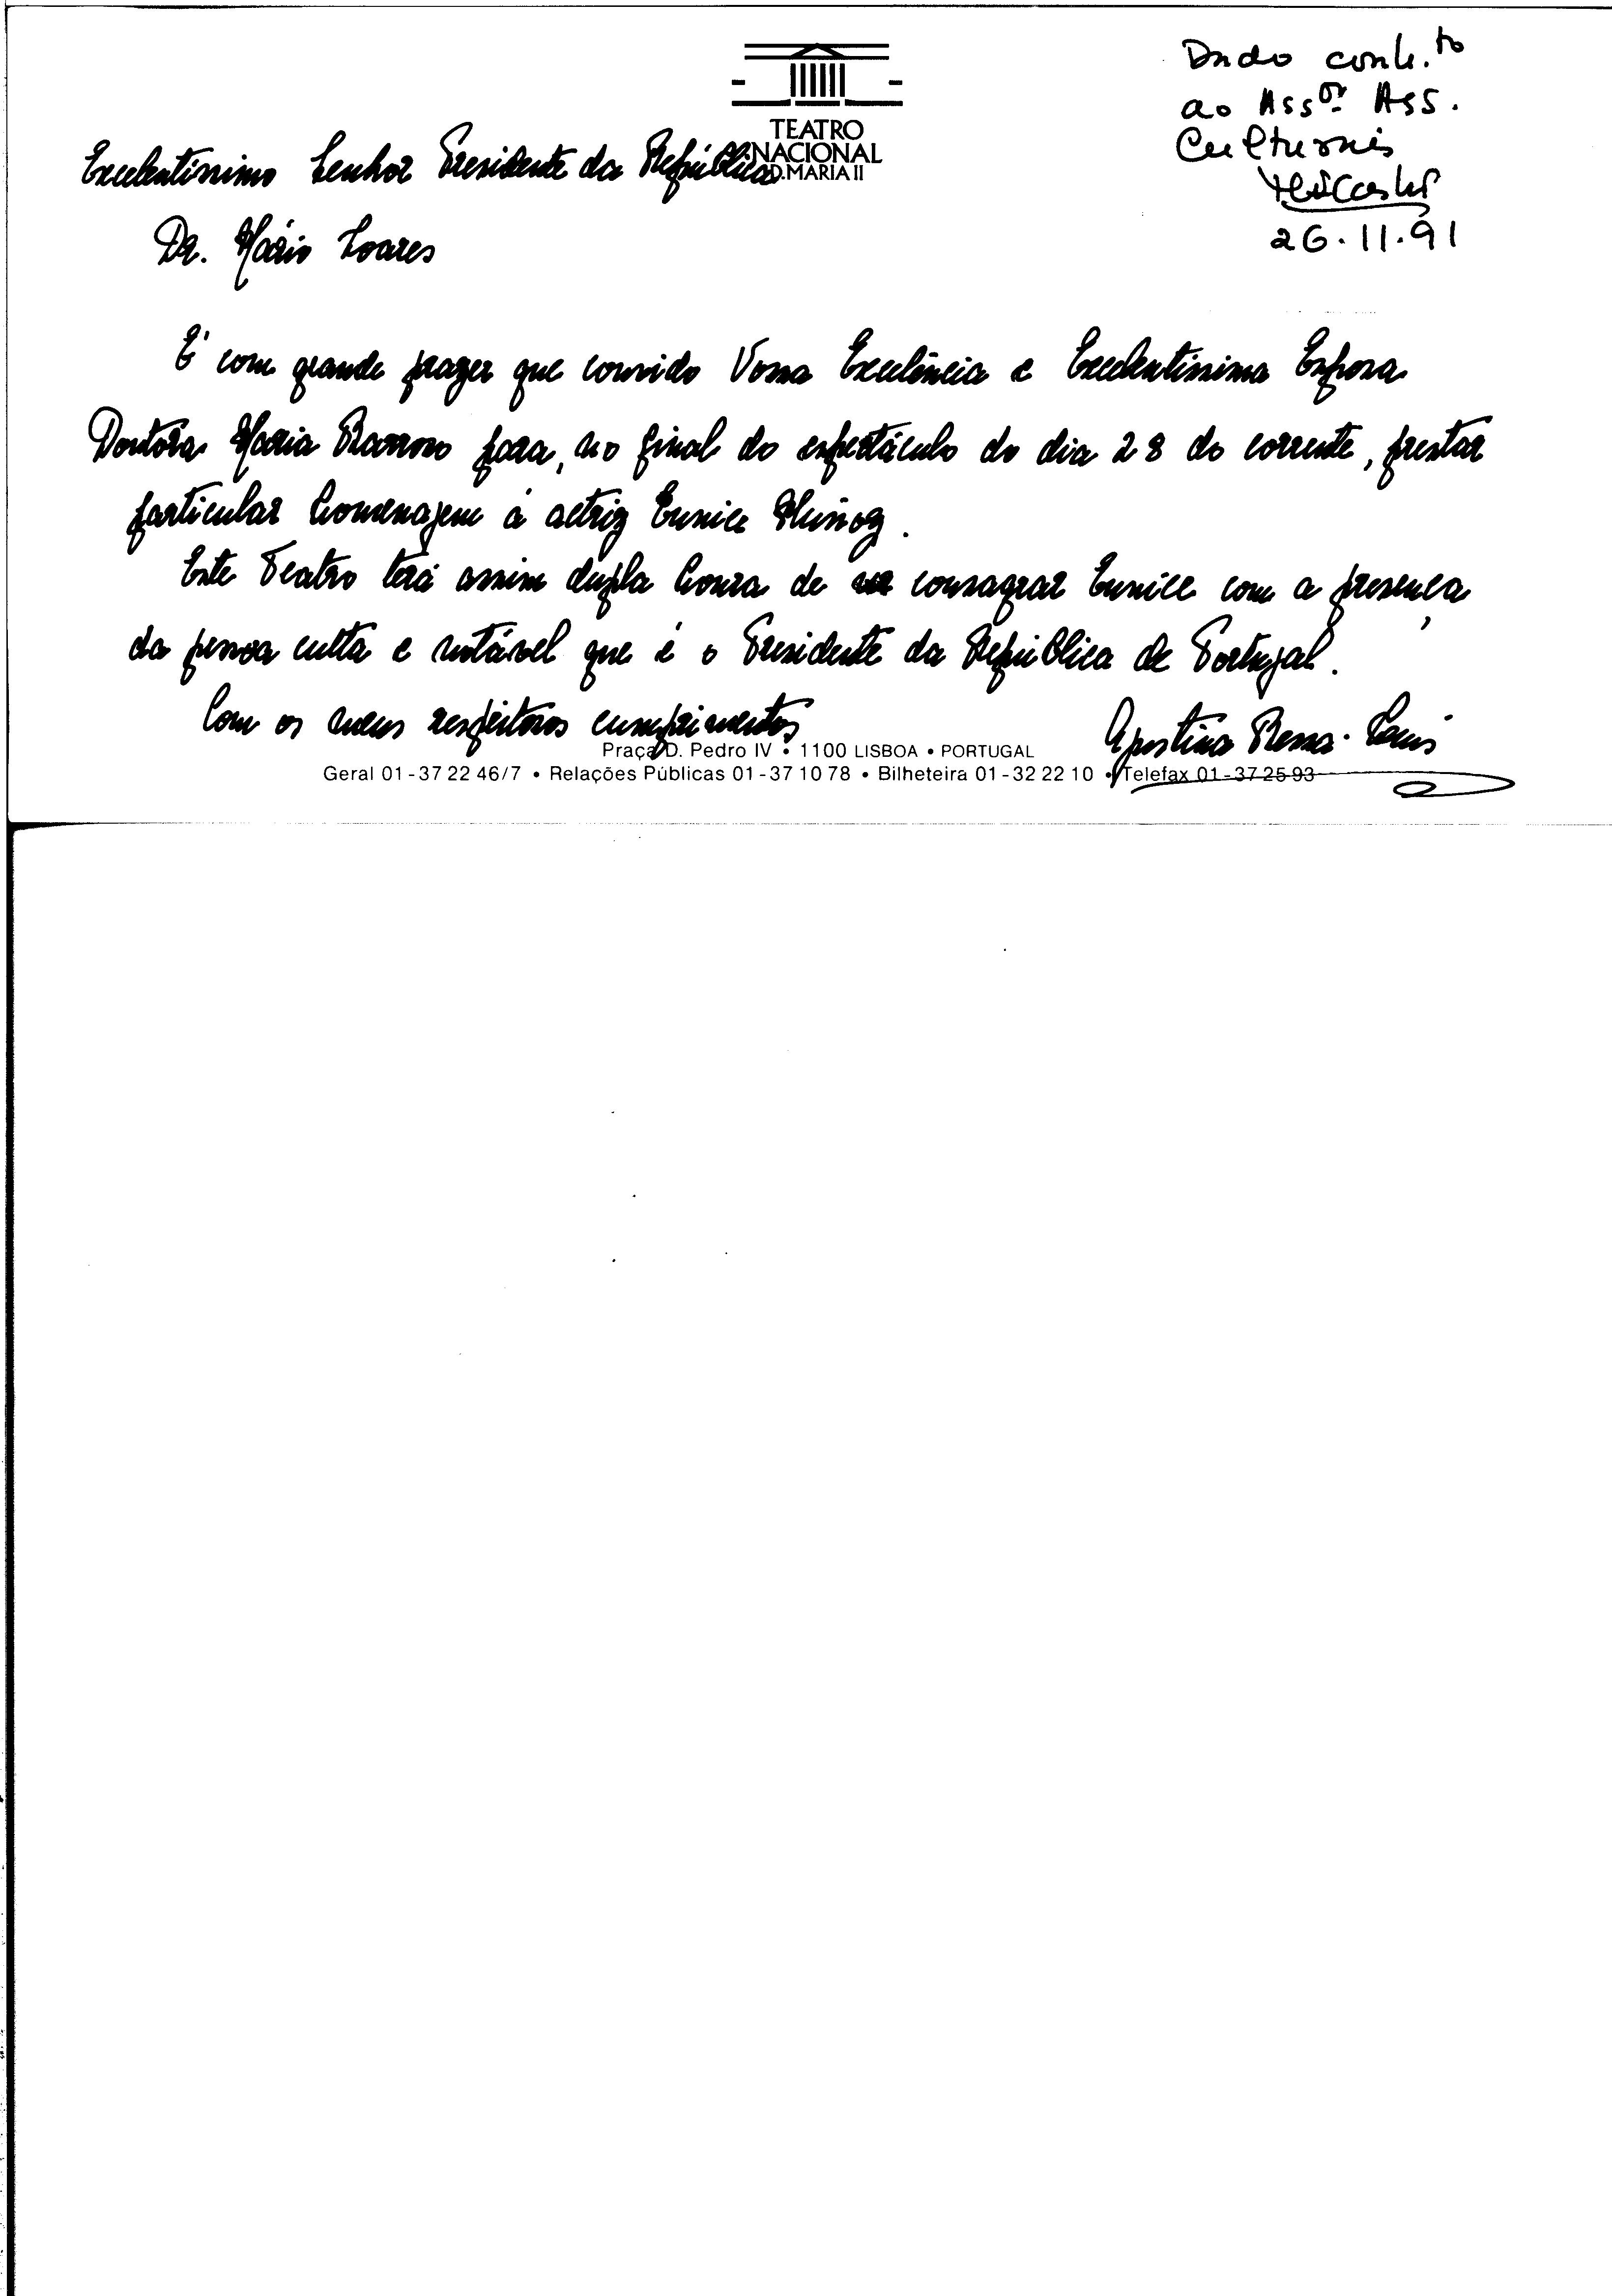 TEATRO
NACIONAL
D. MARIA II
Dado conh.to
ao Assor Ass.
Culturais
26.11.91
Excelentíssimo Senhor Presidente da República
Dr. Mário Soares
É com grande prazer que convido Vossa Excelência e Excelentíssima Esposa
Doutora Maria Barroso para, no final do espectáculo do dia 28 do corrente, prestar
particular homenagem à actriz Eunice Muñoz.
Este Teatro terá assim dupla honra de consagrar Eunice com a presença
da pessoa culta e notável que é o Presidente da República de Portugal.
Com os meus respeitosos cumprimentos
Agustina Bessa-Luís
Praça D. Pedro IV • 1100 LISBOA • PORTUGAL
Geral 01-37 22 46/7 • Relações Públicas 01-37 10 78 • Bilheteira 01-32 22 10 • Telefax 01-37 25 93